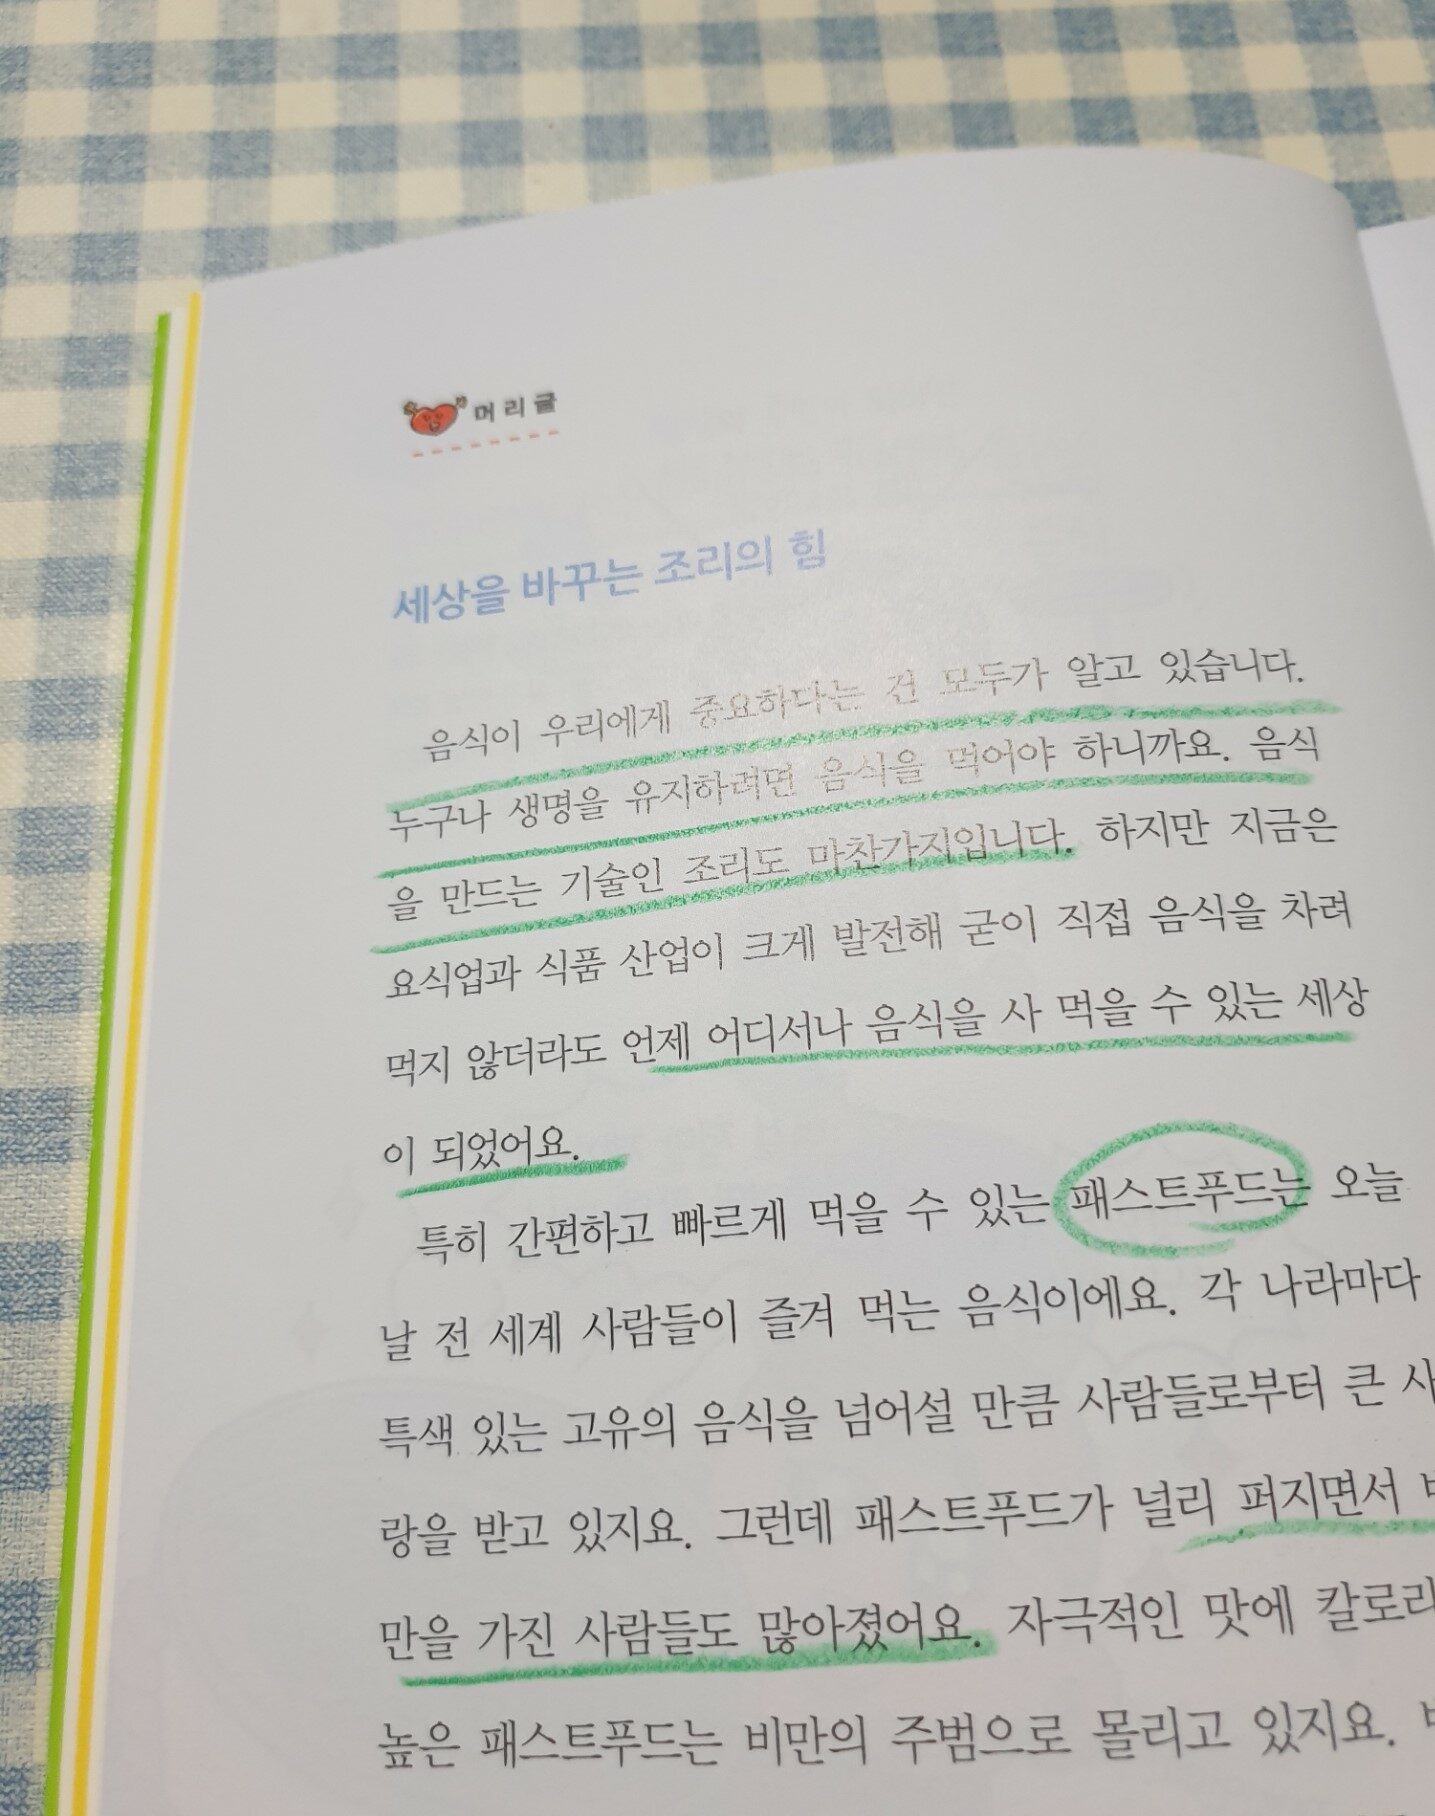 머리글
세상을 바꾸는 조리의 힘
음식이 우리에게 중요하다는 건 모두가 알고 있습니다.
누구나 생명을 유지하려면 음식을 먹어야 하니까요. 음식
을 만드는 기술인 조리도 마찬가지입니다. 하지만 지금은
요식업과 식품 산업이 크게 발전해 굳이 직접 음식을 차려
먹지 않더라도 언제 어디서나 음식을 사 먹을 수 있는 세상
이 되었어요.
특히 간편하고 빠르게 먹을 수 있는 패스트푸드는 오늘
날 전 세계 사람들이 즐겨 먹는 음식이에요. 각 나라마다
특색 있는 고유의 음식을 넘어설 만큼 사람들로부터 큰 사
랑을 받고 있지요. 그런데 패스트푸드가 널리 퍼지면서
만을 가진 사람들도 많아졌어요. 자극적인 맛에 칼로리
높은 패스트푸드는 비만의 주범으로 몰리고 있지요.